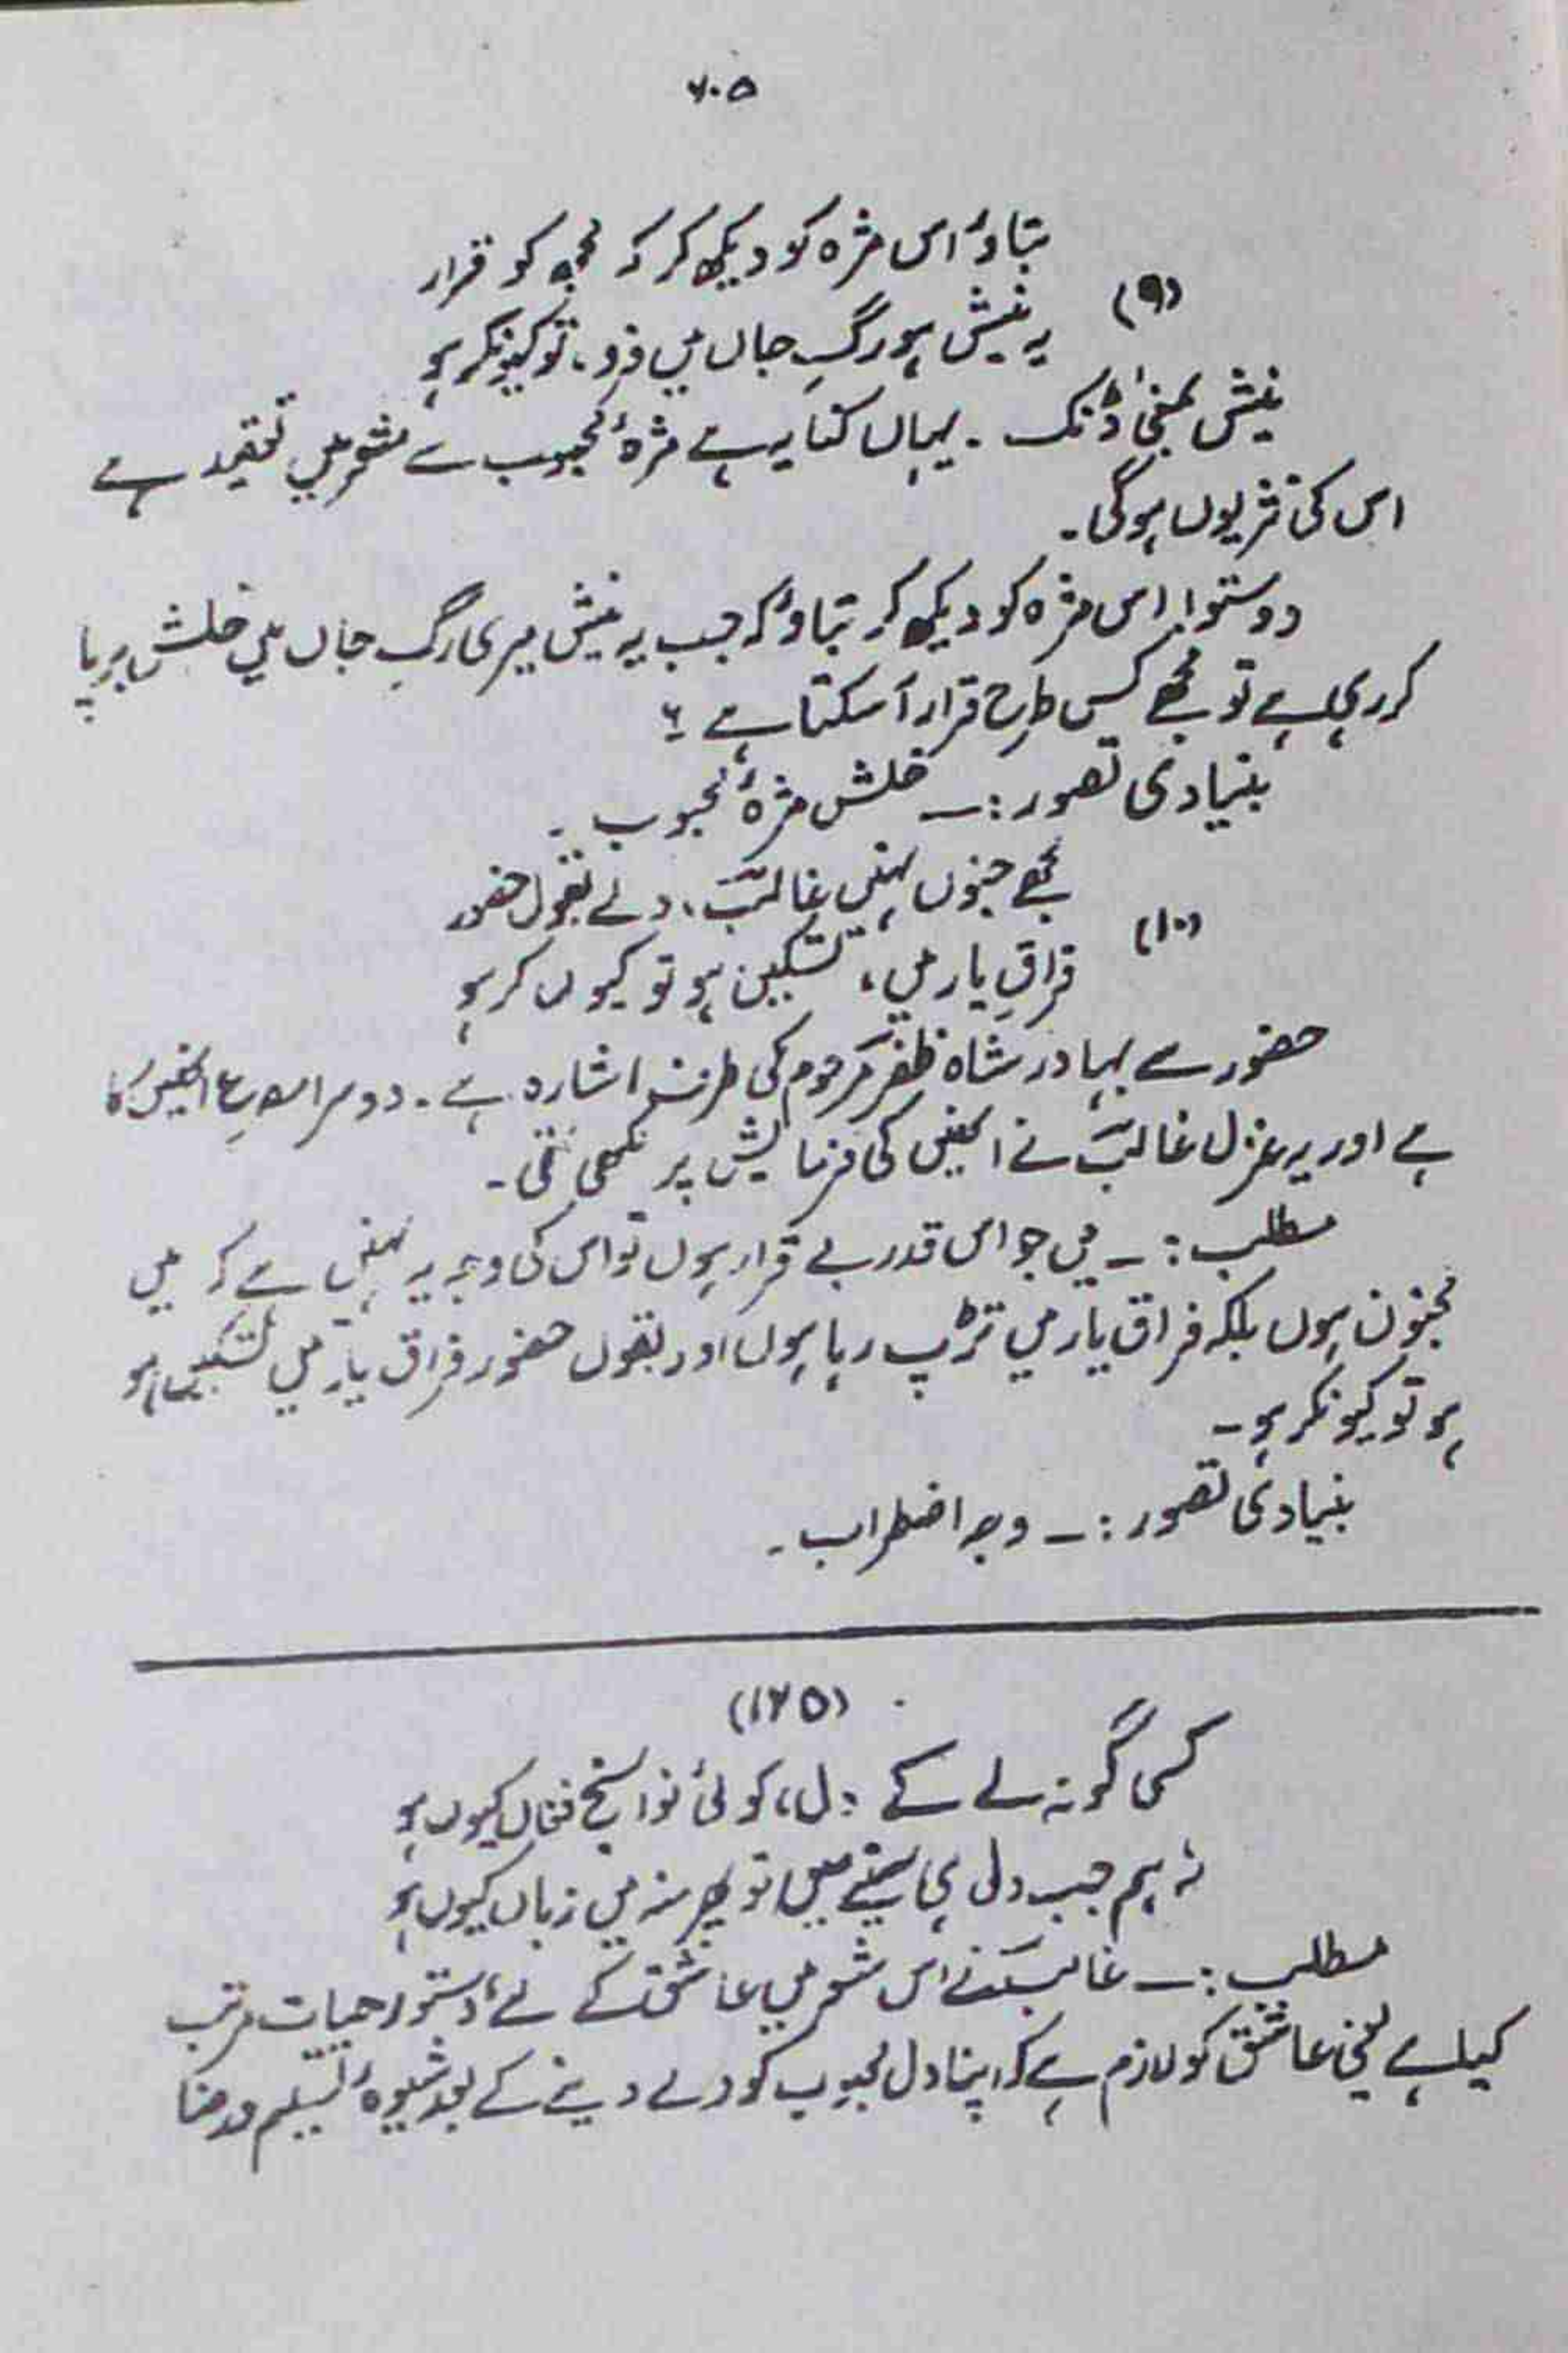 ۶۰۵
بتاؤ اس مژہ کو دیکھ کر کہ مجھ کو قرار
(۹)
یہ نیش ہو رگِ جاں میں فرو، تو کیونکر ہو
نیش بمعنیٰ ڈنک ۔ یہاں کنایہ ہے مژۂ محبوب سے شعر میں تعقید ہے
اس کی نثر یوں ہوگی۔
دوستو! اس مژہ کو دیکھ کر بتاؤ کہ جب یہ نیش میری رگِ جاں میں خلش برپا
کر رہی ہے تو مجھے کس طرح قرار آ سکتا ہے ؟
بنیادی تصور :ــ خلش مژۂ محبوب ۔
مجھے جنوں نہیں غالبؔ، ولے بقول حضور
(۱۰)
فراقِ یار میں، تسکین ہو تو کیوں کر ہو
حضور سے بہادر شاہ ظفرؔ مرحوم کی طرف اشارہ ہے ۔ دوسرا مصرع انھیں کا
ہے اور یہ غزل غالبؔ نے انھیں کی فرمایش پر لکھی تھی ۔
مطلب :ــ میں جو اس قدر بے قرار ہوں تو اس کی وجہ یہ نہیں ہے کہ میں
مجنون ہوں بلکہ فراق یار میں تڑپ رہا ہوں اور بقول حضور فراق یار میں تسکین ہو
ہو تو کیونکر ہو ۔
بنیادی تصور :ــ وجہ اضطراب ۔
(۱۲۵)
کسی گو نہ لے کے دل، کوئی نوا سنج فغاں کیوں ہو
نہ ہم جب دل ہی سینے میں تو پھر منہ میں زباں کیوں ہو
مطلب :ــ غالبؔ نے اس شعر میں عاشق کے لئے دستور حیات مرتب
کیا ہے یعنی عاشق کو لازم ہے کہ اپنا دل محبوب کو دے دینے کے بعد شیوۂ تسلیم و رضا